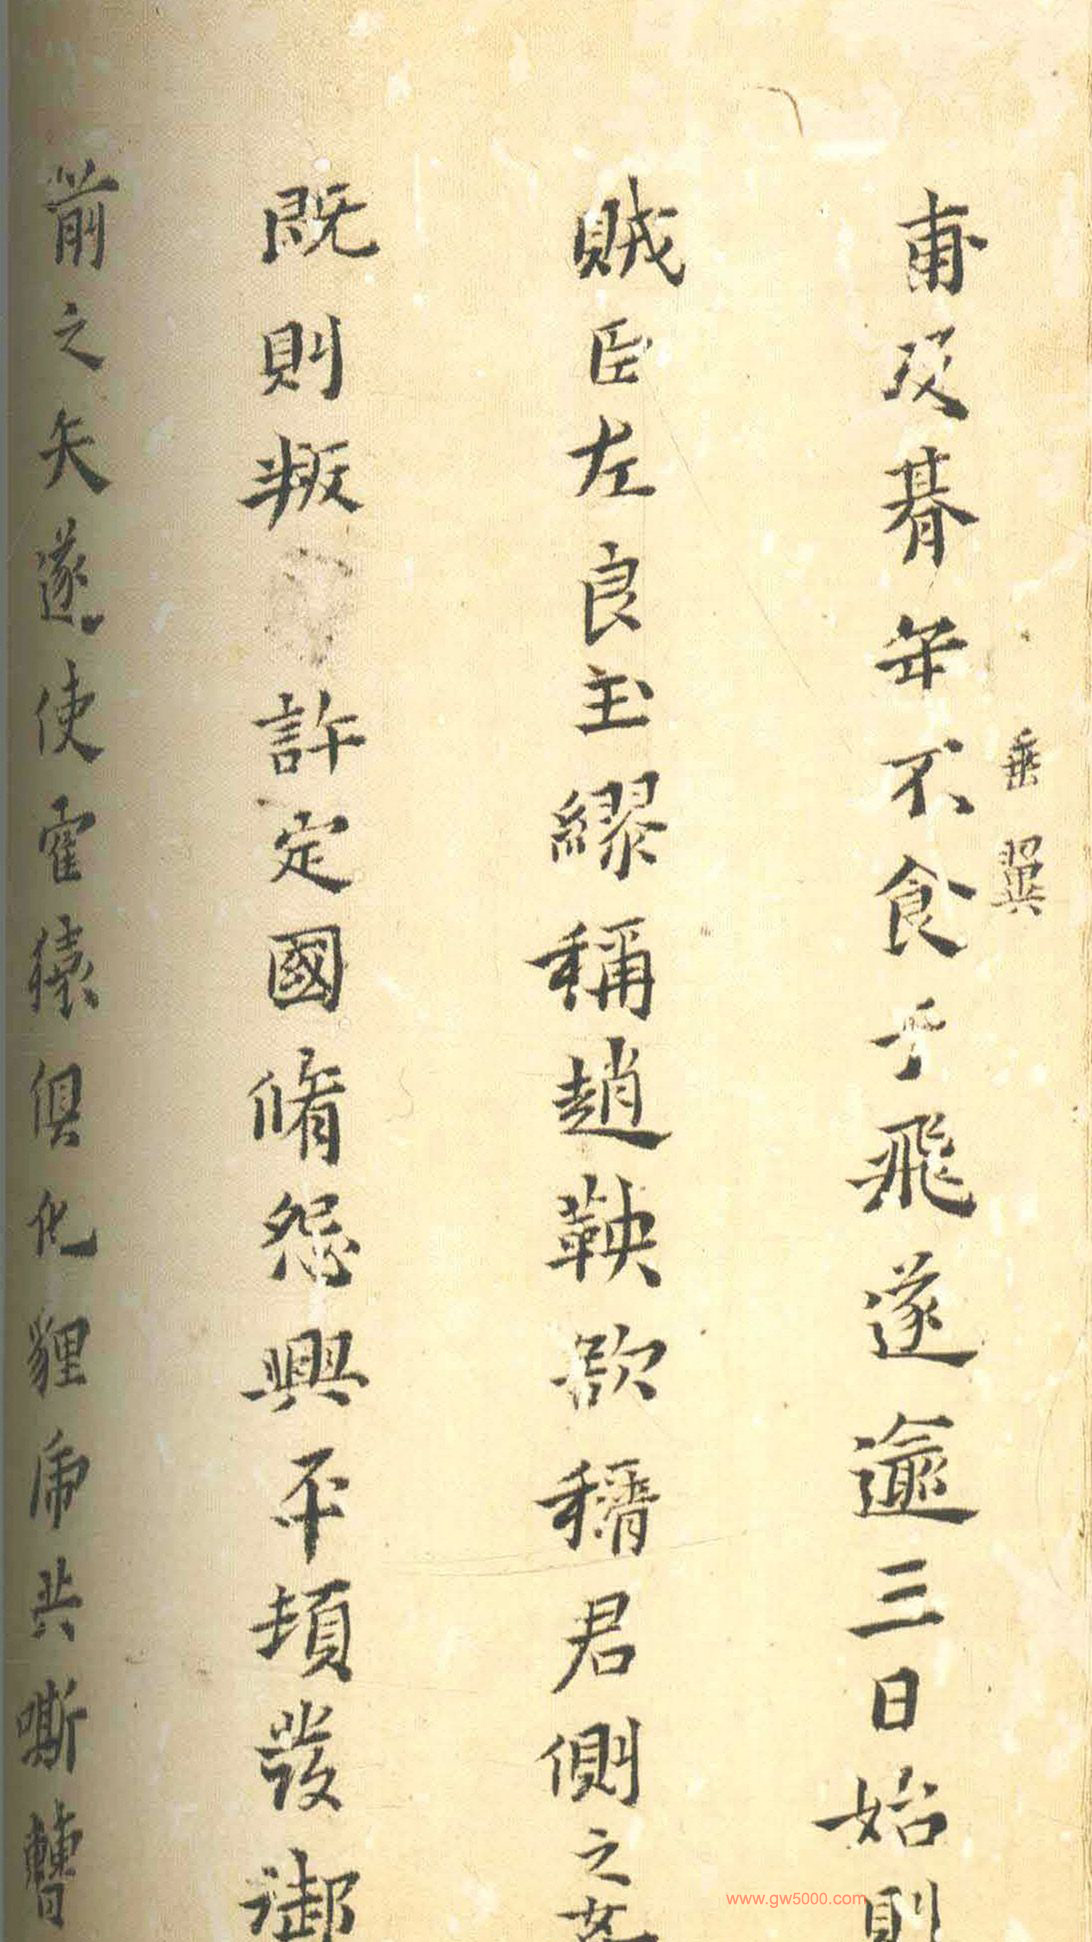 甫及朞年不食于飛遂逾三日始則
垂翼
賊臣左良玉繆稱趙鞅欲稱君側之
既則叛許定國脩怨興平頓發御
前之矢遂使霍猿俱化貍虎共嘶轊
www.gw5000.com